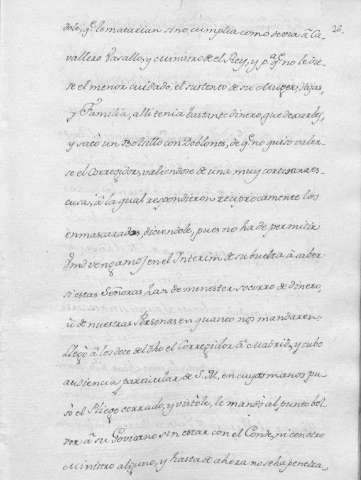 26.
dole, qe. lo matarian sino cumplia como devia â Ca-
vallero Vasallo, y Ministro de el Rey, y pa. qe. no le die-
se el menor cuidado, el sustento de su Muger, Hijas,
y Familia, alli tenia bastante dinero que dexarles,
y sacò un Bolsillo con Doblones, de qe. no quiso valer-
se el Corregidor, valiendose de una muy cortesana es-
cusa, â la qual respondieron reciprocamente los
enmascarados, diciendole, pues no ha de permitir
Vmd vengamos en el Interim de su buelta â saber
si estas Señoras han de menester socorro de dinero,
ù de nuestras Personas en quanto nos mandaren.
Llegò â los doce del dho el Corregidor â Madrid, y tubo
audiencia particular de S. M. en cuyas manos pu-
so el Pliego cerrado, y vistole, le mandò al punto bol-
ver â su Govierno sin estar con el Conde, ni con otro
Ministro alguno, y hasta de ahora no se ha penetra-